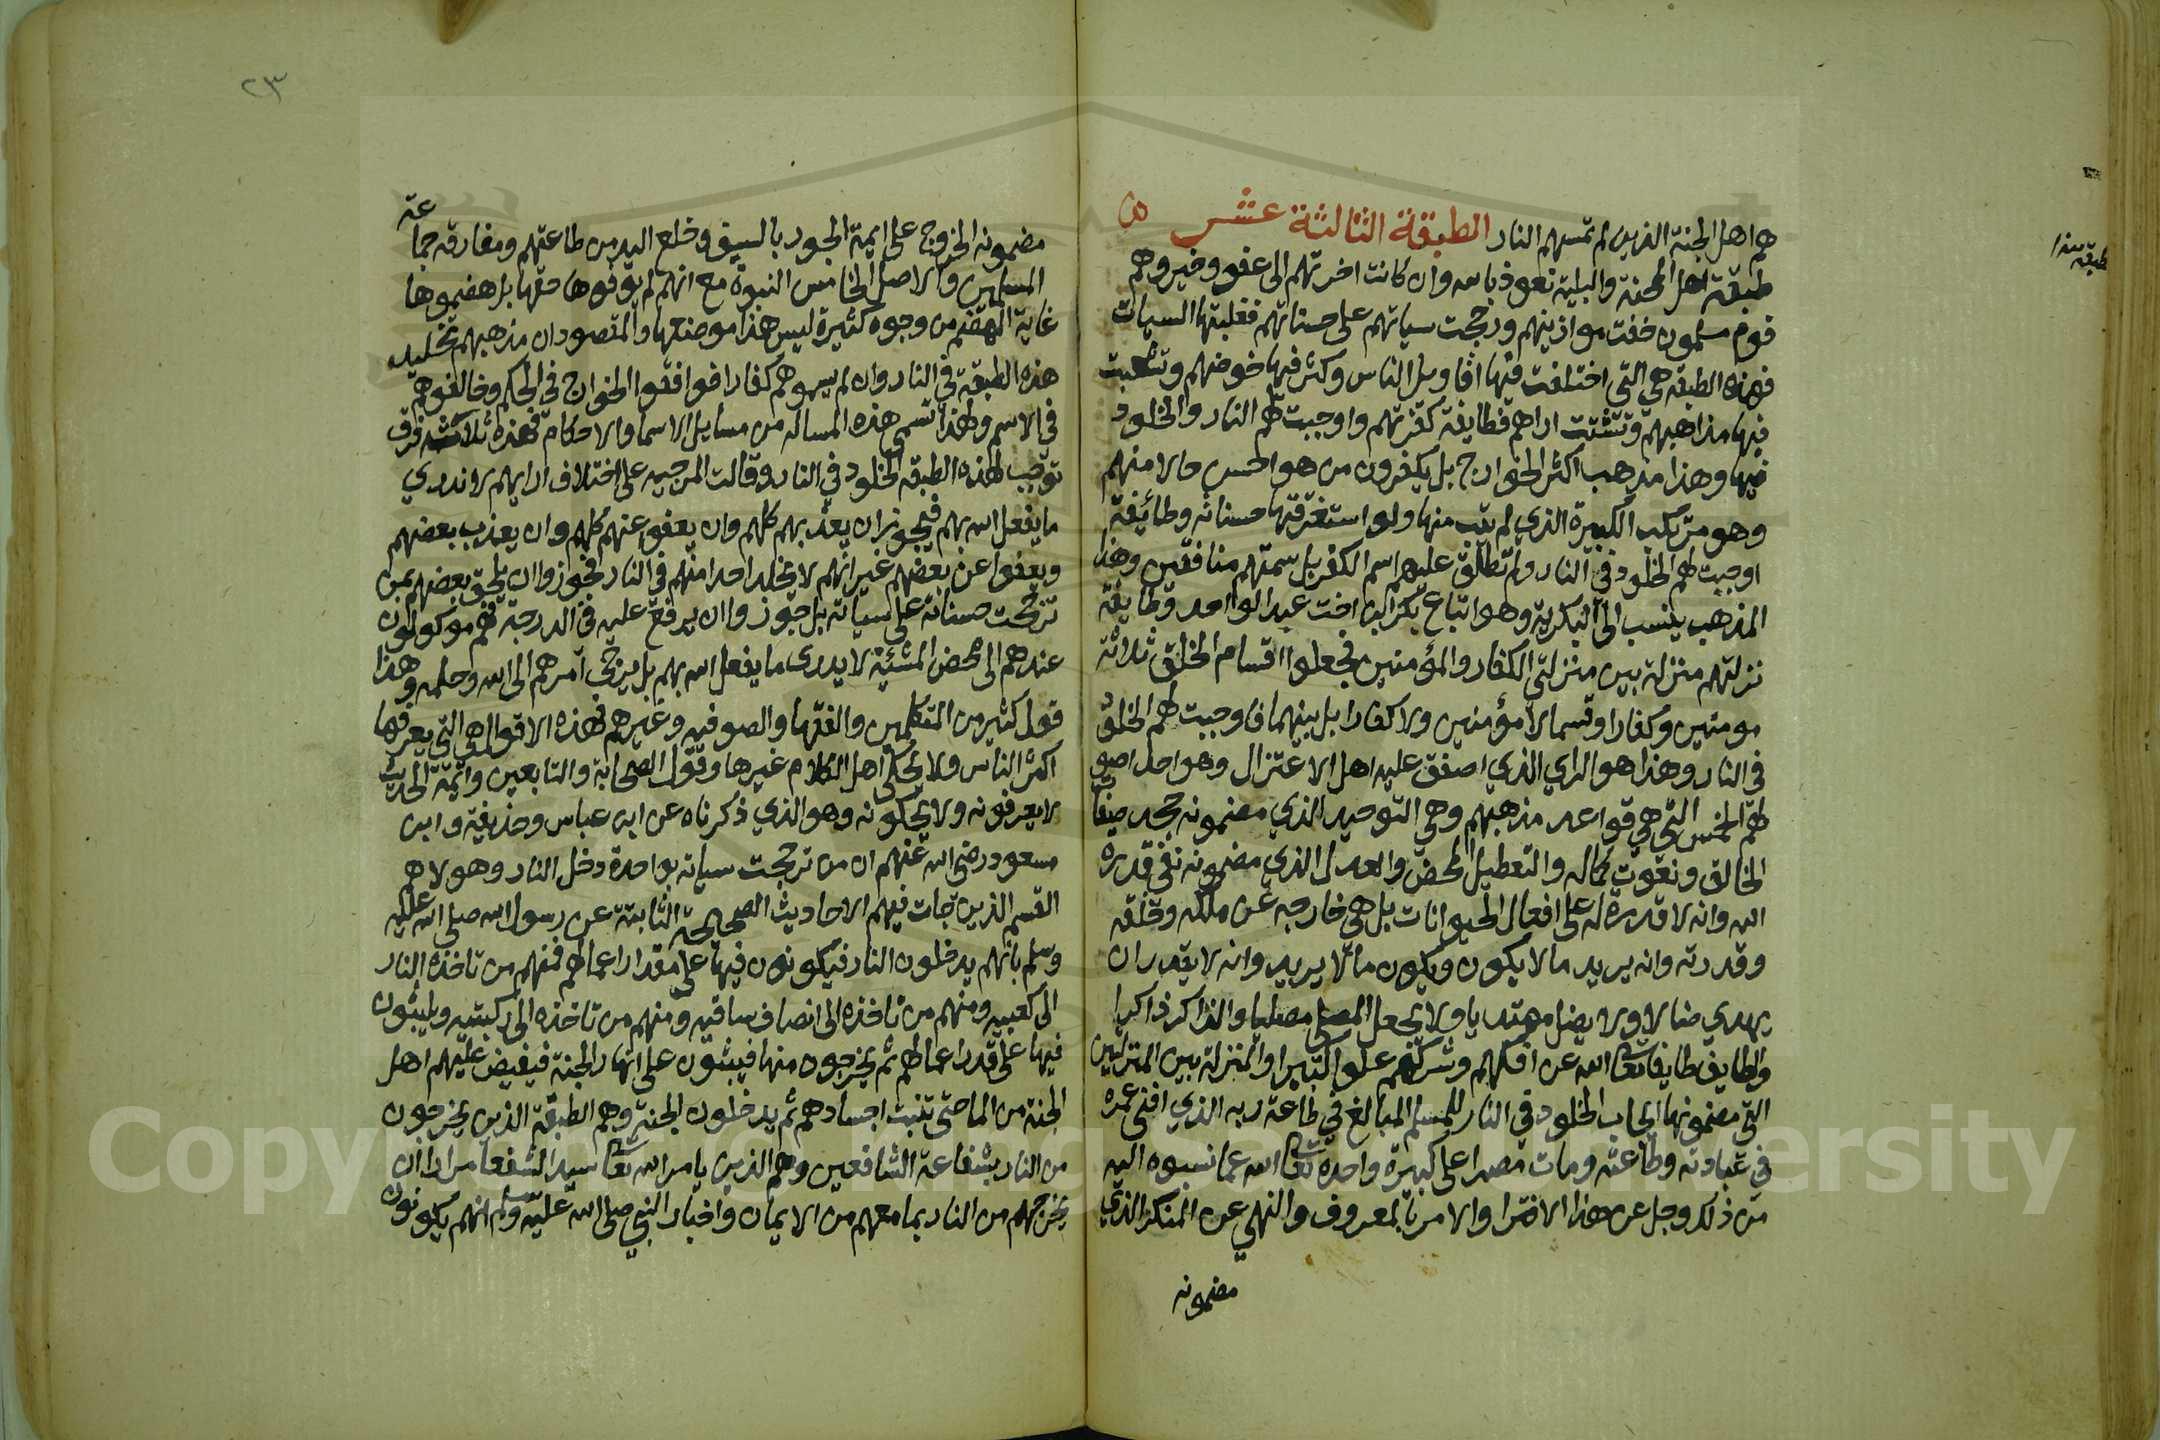 هم اهل الجنة الذين لم تمسهم النار الطبقة الثالثة عشر
طبقة اهل المحنة والبلية نعوذ بالله وان كانت اخرتهم الى عفو وخير وهم
قوم مسلمون خفت موازينهم ورجحت سياتهم على حسناتهم فغلبتها السيات
فهذه الطبقة هي التي اختلفت فيها اقاويل الناس وكثر فيها خوضهم وتشعبت
فيها مذاهبهم وتشتت اراهم فطايفة كفرتهم واوجبت لهم النار والخلود
فيها وهذا مذهب اكثر الخوارج بل يكفرون من هو احسن حالا منهم
وهو مرتكب الكبيرة الذي لم يتب منها ولو استغرقتها حسناته وطائفة
اوجبت لهم الخلود في النار ولم تطلق عليهم اسم الكفر بل سمتهم منافقين وهذا
المذهب ينسب الى البكرية وهو اتباع بكر ابن اخت عبد الواحد وطايفة
نزلتهم منزلة بين منزلتي الكفار والمؤمنين فجعلوا اقسام الخلق ثلاثة
مومنين وكفارا وقسما لا مؤمنين ولا كفارا بل بينهما فاوجبت لهم الخلود
في النار وهذا هو الراي الذي اصفق عليه اهل الاعتزال وهو احد اصو
لهم الخمس التي هي قواعد مذهبهم وهي التوحيد الذي مضمونه جحد صفا
الخالق ونعوت كماله والتعطيل المحض والعدل الذي مضمونه نفي قدره
الله وانه لا قدرة له على افعال الحيوانات بل هي خارجه عن ملكه وخلقه
وقدرته وانه يريد ما لا يكون ويكون ما لا يريد وانه لا يقدر ان
يهدي ضالا ولا يضل مهتديا ولا يجعل المصلي مصليا والذاكر ذاكرا
والطايف طايفا تعالى الله عن افكهم وشركهم علوا كبيرا والمنزلة بين المنزلتين
التي مضمونها ايجاب الخلود في النار للمسلم المبالغ في طاعة ربه الذي افنى عمره
في عبادته وطاعته ومات مصرا على كبيرة واحده تعالى الله عما نسبوه اليه
من ذلك وجل عن هذا الافترا والامر بالمعروف والنهي عن المنكر الذي
مضمونه
طبقة هذا
٢٣
مضمونه الخروج على ايمة الجور بالسيف وخلع اليد من طاعتهم ومفارقه جماعة
المسلمين والاصل الخامس النبوة مع انهم لم يوفوها حقها بل هضموها
غاية الهضم من وجوه كثيرة ليس هذا موضعها والمقصود ان مذهبهم تخليد
هذه الطبقة في النار وان لم يسموهم كفارا فوافقوا الخوارج في الحكم وخالفوهم
في الاسم ولهذا تسمى هذه المساله من مسايل الاسما والاحكام فهذه ثلاث فرق
توجب لهذه الطبقه الخلود في النار وقالت المرجيه على اختلاف ارايهم لا ندري
ما يفعل الله بهم فيجوز ان يعذبهم كلهم وان يعفو عنهم كلهم وان يعذب بعضهم
ويعفوا عن بعضهم غير انهم لا يخلد احدا منهم في النار فجوزوا ان يلحق بعضهم بمن
ترجحت حسناته على سياته بل جوزوا ان يرفع عليه في الدرجة فهم موكولون
عندهم الى محض المشيئة لا يدرى ما يفعل الله بهم بل يرجى امرهم الى الله وحكمه وهذا
قول كثير من المتكلمين والفقها والصوفيه وغيرهم فهذه الاقوال هي التي يعرفها
اكثر الناس ولا يحكى اهل الكلام غيرها وقول الصحابة والتابعين وائمة الحديث
لا يعرفونه ولا يحكونه وهو الذي ذكرناه عن ابن عباس وحذيفة وابن
مسعود رضى الله عنهم ان من ترجحت سياته بواحدة دخل النار وهولا هم
القسم الذين جات فيهم الاحاديث الصحيحة الثابتة عن رسول الله صلى الله عليه
وسلم بانهم يدخلون النار فيكونون فيها على مقدار اعمالهم فمنهم من تاخذه النار
الى كعبيه ومنهم من تاخذه الى انصاف ساقيه ومنهم من تاخذه الى ركبتيه ويلبثون
فيها على قدر اعمالهم ثم يخرجون منها فيبثون على انهار الجنة فيفيض عليهم اهل
الجنة من الما حتى تنبت اجسادهم ثم يدخلون الجنة وهم الطبقة الذين يخرجون
من النار بشفاعة الشافعين وهم الذين يامر الله تعالى سيد الشفعا مرارا ان
يخرجهم من النار بما معهم من الايمان واخبار النبي صلى الله عليه وسلم انهم يكونون